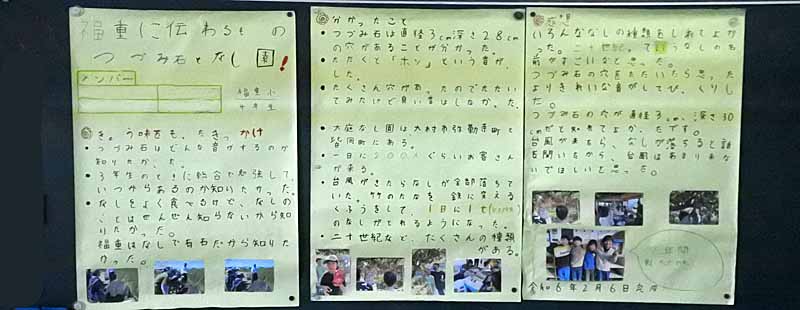 福重に伝わるもの
つづみ石となし園!
メンバー
福重小
きょう味をも たきっかけ
つづみ石はどんな音がするのか
知りたかった。
3年生のときに総合で勉強して、
いつからあるのか知りたかった。
なしをよく食べるけど、なしの
ことはぜんぜん知らないから知
りたかった。
福重はなしで有名だから知りた
かった。
分かったこと
つづみ石は直径3cm深さ28cm
の穴があることが分かった。
たたくと「ポン」という音が
した。
たくさん穴があったのでたたい
てみたけど良い音はしなかった。
大庭なし園は大村市弥勒寺町と
皆同町にある。
一日に200人ぐらいお客さん
が来る。
台風がきたらなしが全部落ちて
いた。竹のたなを、鉄に変える
くふうをして、1日に1t
のなしがとれるようになった。
二十世紀など、たくさんの種類
がある。
感想
いろんななしの種類をしれてよか
った。二十世紀 というなしの名
前がすごいなと思った。
つづみ石の穴をたたいたら思った
よりきれいな音がしてびっくりし
た。
つづみ石の穴が直径3cm、深さ30
cmだと知れてよかったです。
台風が来たら、なしが落ちると話
を聞いたから、台風はあまり来な
いでほしいと思った。
令和6年2月6日